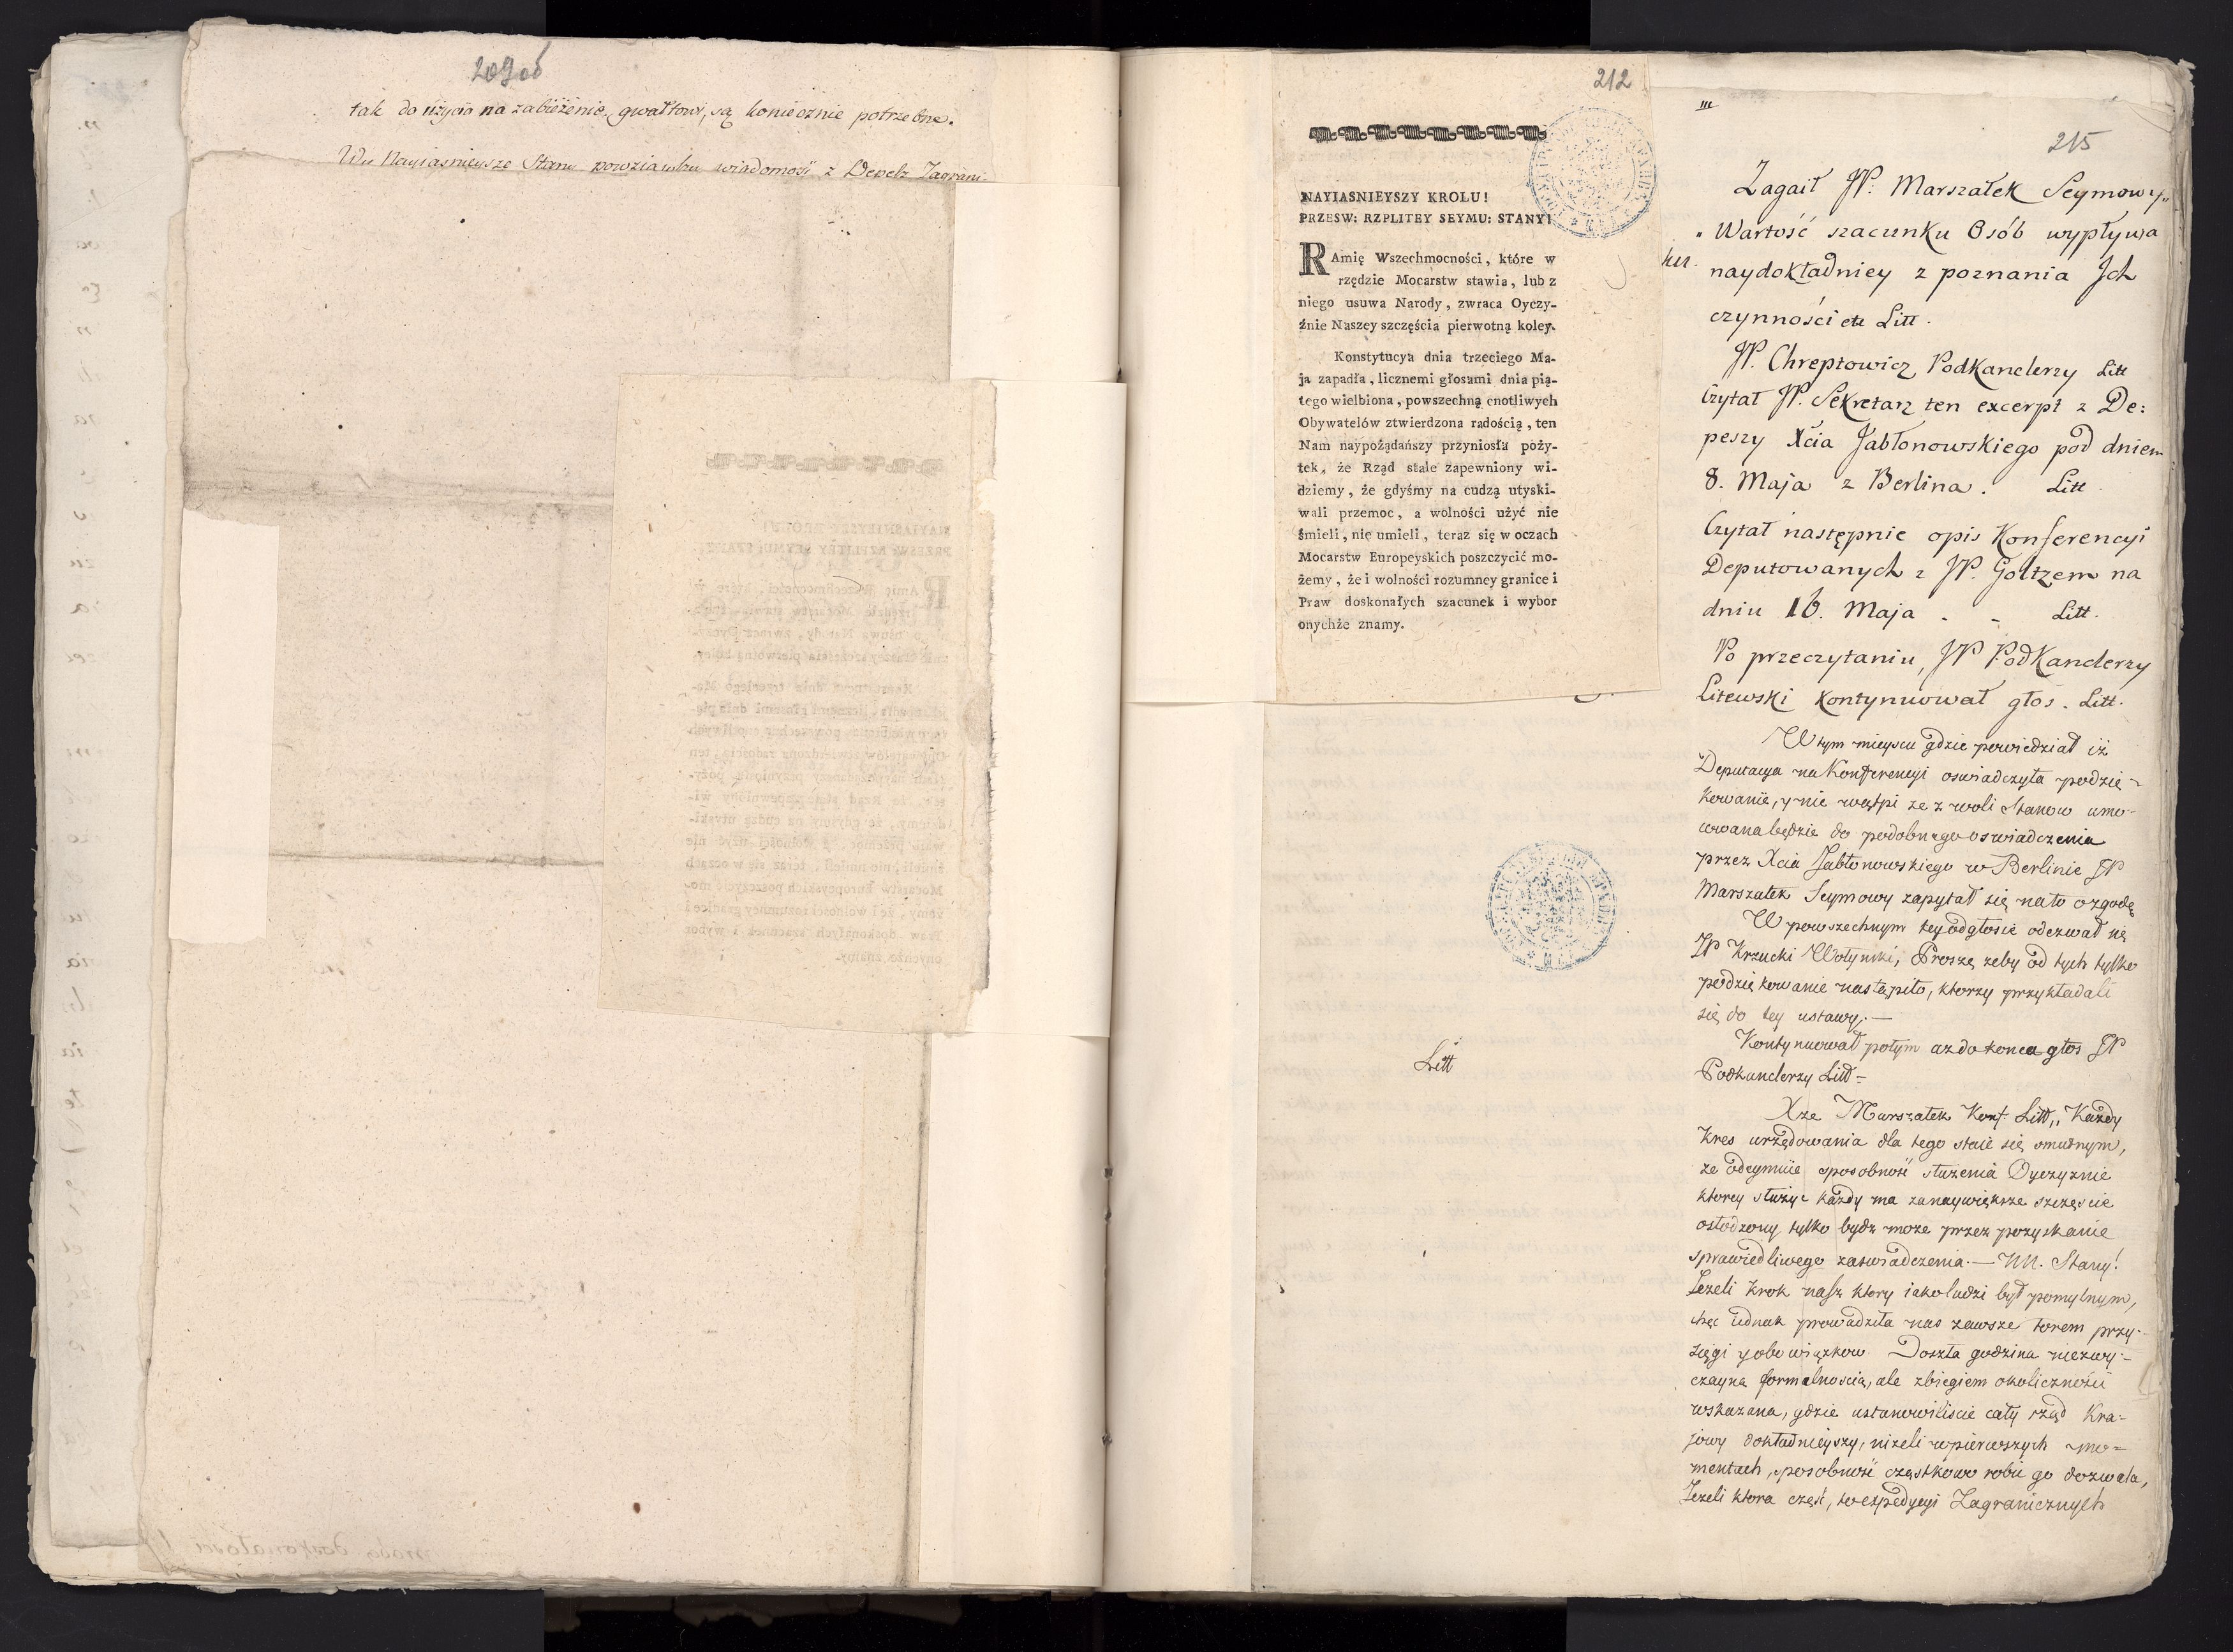 209 об
tak do użycia na zabieżenie gwałtowi, są koniecznie potrzebne.
Wy Nayiasnieysze Stany powzięliście wiadomość z Depesz Zagrani-
212
NAYIASNIEYSZY KROLU!
PRZESW: RZPLITEY SEYMU: STANY!
RAmię Wszechmocności, które w
rzędzie Mocarstw stawia, lub z
niego usuwa Narody, zwraca Oyczy-
źnie Naszey szczęścia pierwotną koley.
Konstytucya dnia trzeciego Ma-
ja zapadła, licznemi głosami dnia pią-
tego wielbiona, powszechną cnotliwych
Obywatelów ztwierdzona radością, ten
Nam naypożądańszy przyniosła poży-
tek, że Rząd stale zapewniony wi-
dziemy, że gdyśmy na cudzą utyski-
wali przemoc, a wolności użyć nie
śmieli, nie umieli, teraz się w oczach
Mocarstw Europeyskich poszczycić mo-
żemy, że i wolności rozumney granice i
Praw doskonałych szacunek i wybor
onychże znamy.
Litt
215
Zagaił JP. Marszałek Seymowy„
„Wartość szacunku Osób wypływa
naydokładniey z poznania Ich
czynności etc Litt.
JP. Chreptowicz Podkanclerzy Litt
Czytał JP. Sekretarz ten excerpt z De:
peszy Xcia Jabłonowskiego pod dniem
8. Maja z Berlina. Litt.
Czytał następnie opis Konferencyi
Deputowanych z JP. Goltzem na
dniu 16. Maja - - Litt.
Po przeczytaniu, JP Podkanclerzy
Litewski kontynuował głos. Litt.
W tym mieyscu gdzie powiedział iż
Deputacya na Konferencyi oswiadczyła podzię-
kowanie, y nie wątpi ze z woli Stanow umo-
cowana będzie do podobnego oswiadczenia
przez Xcia Jabłonowskiego w Berlinie JP
Marszałek Seymowy zapytał się na to o zgodę
W powszechnym tey odgłosie odezwał się
JP Krzucki Wołyński, Proszę zeby od tych tylko
podziękowanie nastąpiło, ktorzy przykładali
się do tey ustawy.—
Kontynuował potym az do konca głos JP
Podkanclerzy Litt=
Xze Marszałek Konf: Litt„ Każdy
Kres urzędowania dla tego staie się smutnym,
ze odeymuie sposobność służenia Oyczyznie
ktorey służyc każdy ma za naywiększe szczęscie
osłodzony tylko bydz moze przez pozyskanie
sprawiedliwego zaswiadczenia.— NN. Stany!
Jezeli krok nasz ktory iako ludzi był pomylnym,
chęc iednak prowadziła nas zawsze torem przy-
sięgi y obowiązkow. Doszła godzina niezwy-
czayną formalnoscią, ale zbiegiem okoliczności
wskazana, gdzie ustanowiliscie cały rząd Kra-
jowy dokładnieyszy, nizeli w pierwszych mo-
mentach, sposobność cząstkowo robić go dozwala,
Jezeli ktora część, to expedycyi Zagranicznych